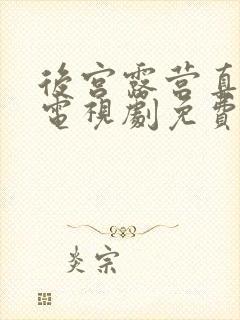 後宮露营真
電視劇免費
炎宗